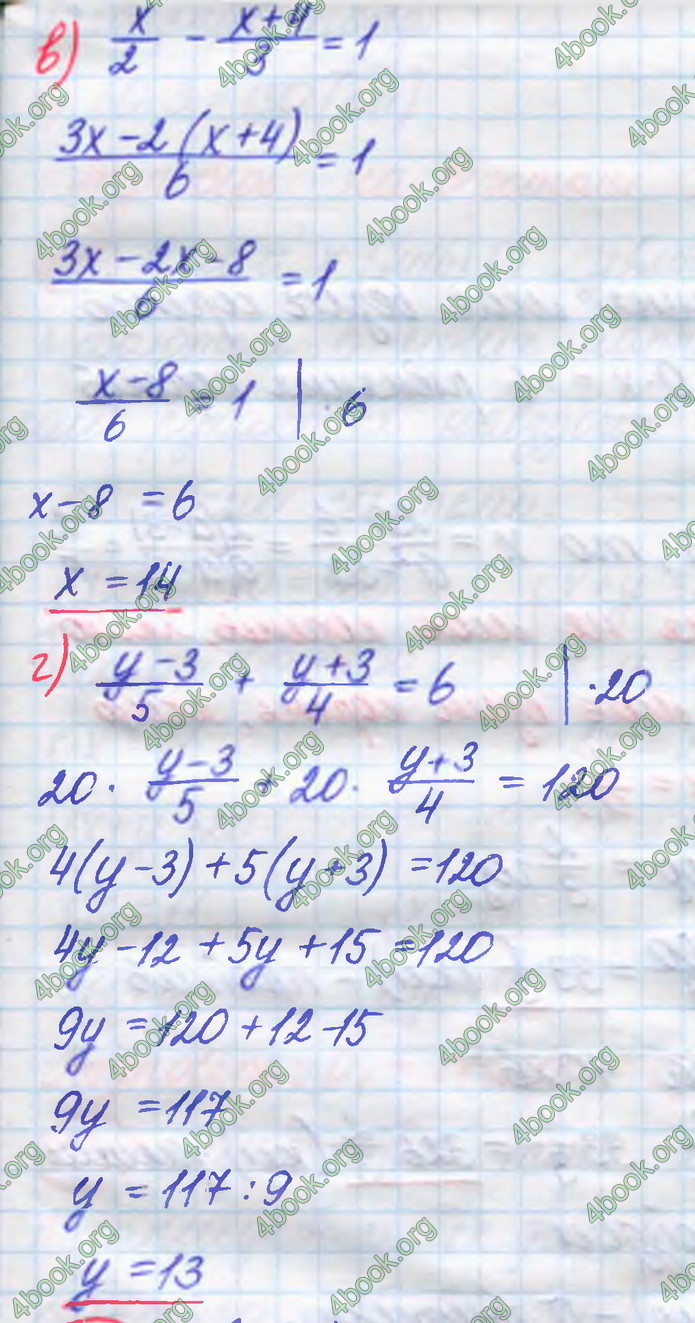 в) x/2 - x+4/3 = 1
3x-2(x+4)/6 = 1
3x-2x-8/6 = 1
x-8/6 = 1 | · 6
x-8 = 6
x = 14
г) y-3/5 + y+3/4 = 6 | ·20
20 · y-3/5 + 20 · y+3/4 = 120
4(y-3)+5(y+3) = 120
4y-12+5y+15 = 120
9y = 120+12-15
9y = 117
y = 117:9
y = 13
4book.org